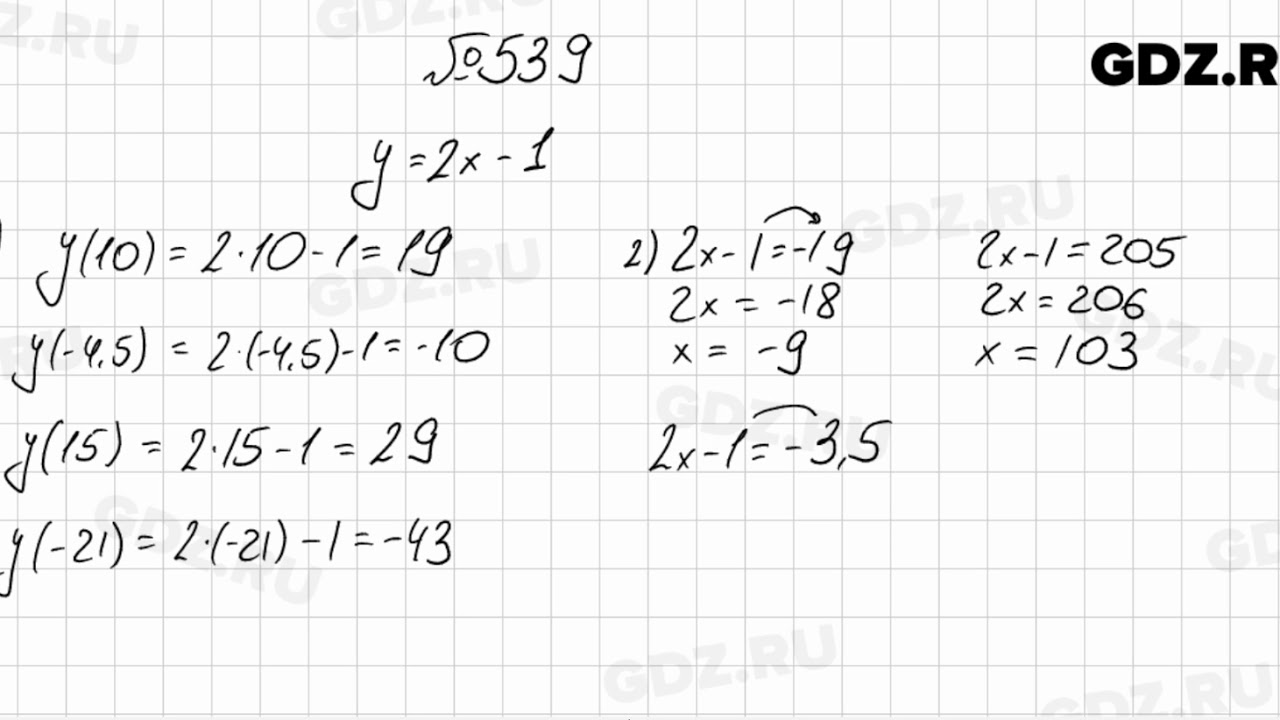 №539
GDZ.R
y = 2x - 1
y(10) = 2·10 - 1 = 19
y(-4.5) = 2·(-4.5) - 1 = -10
y(15) = 2·15 - 1 = 29
y(-21) = 2·(-21) - 1 = -43
2) 2x - 1 = -19
2x = -18
x = -9
2x - 1 = -3,5
2x - 1 = 205
2x = 206
x = 103
GDZ.RU